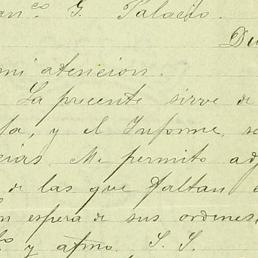 an.co G. Palacio.
Du
mi atencion.
La presente sirve de
la, y el Informe, so
cias. Me permito ad
de las que faltan e
n espera de sus ordenes,
y afmo. S. S.